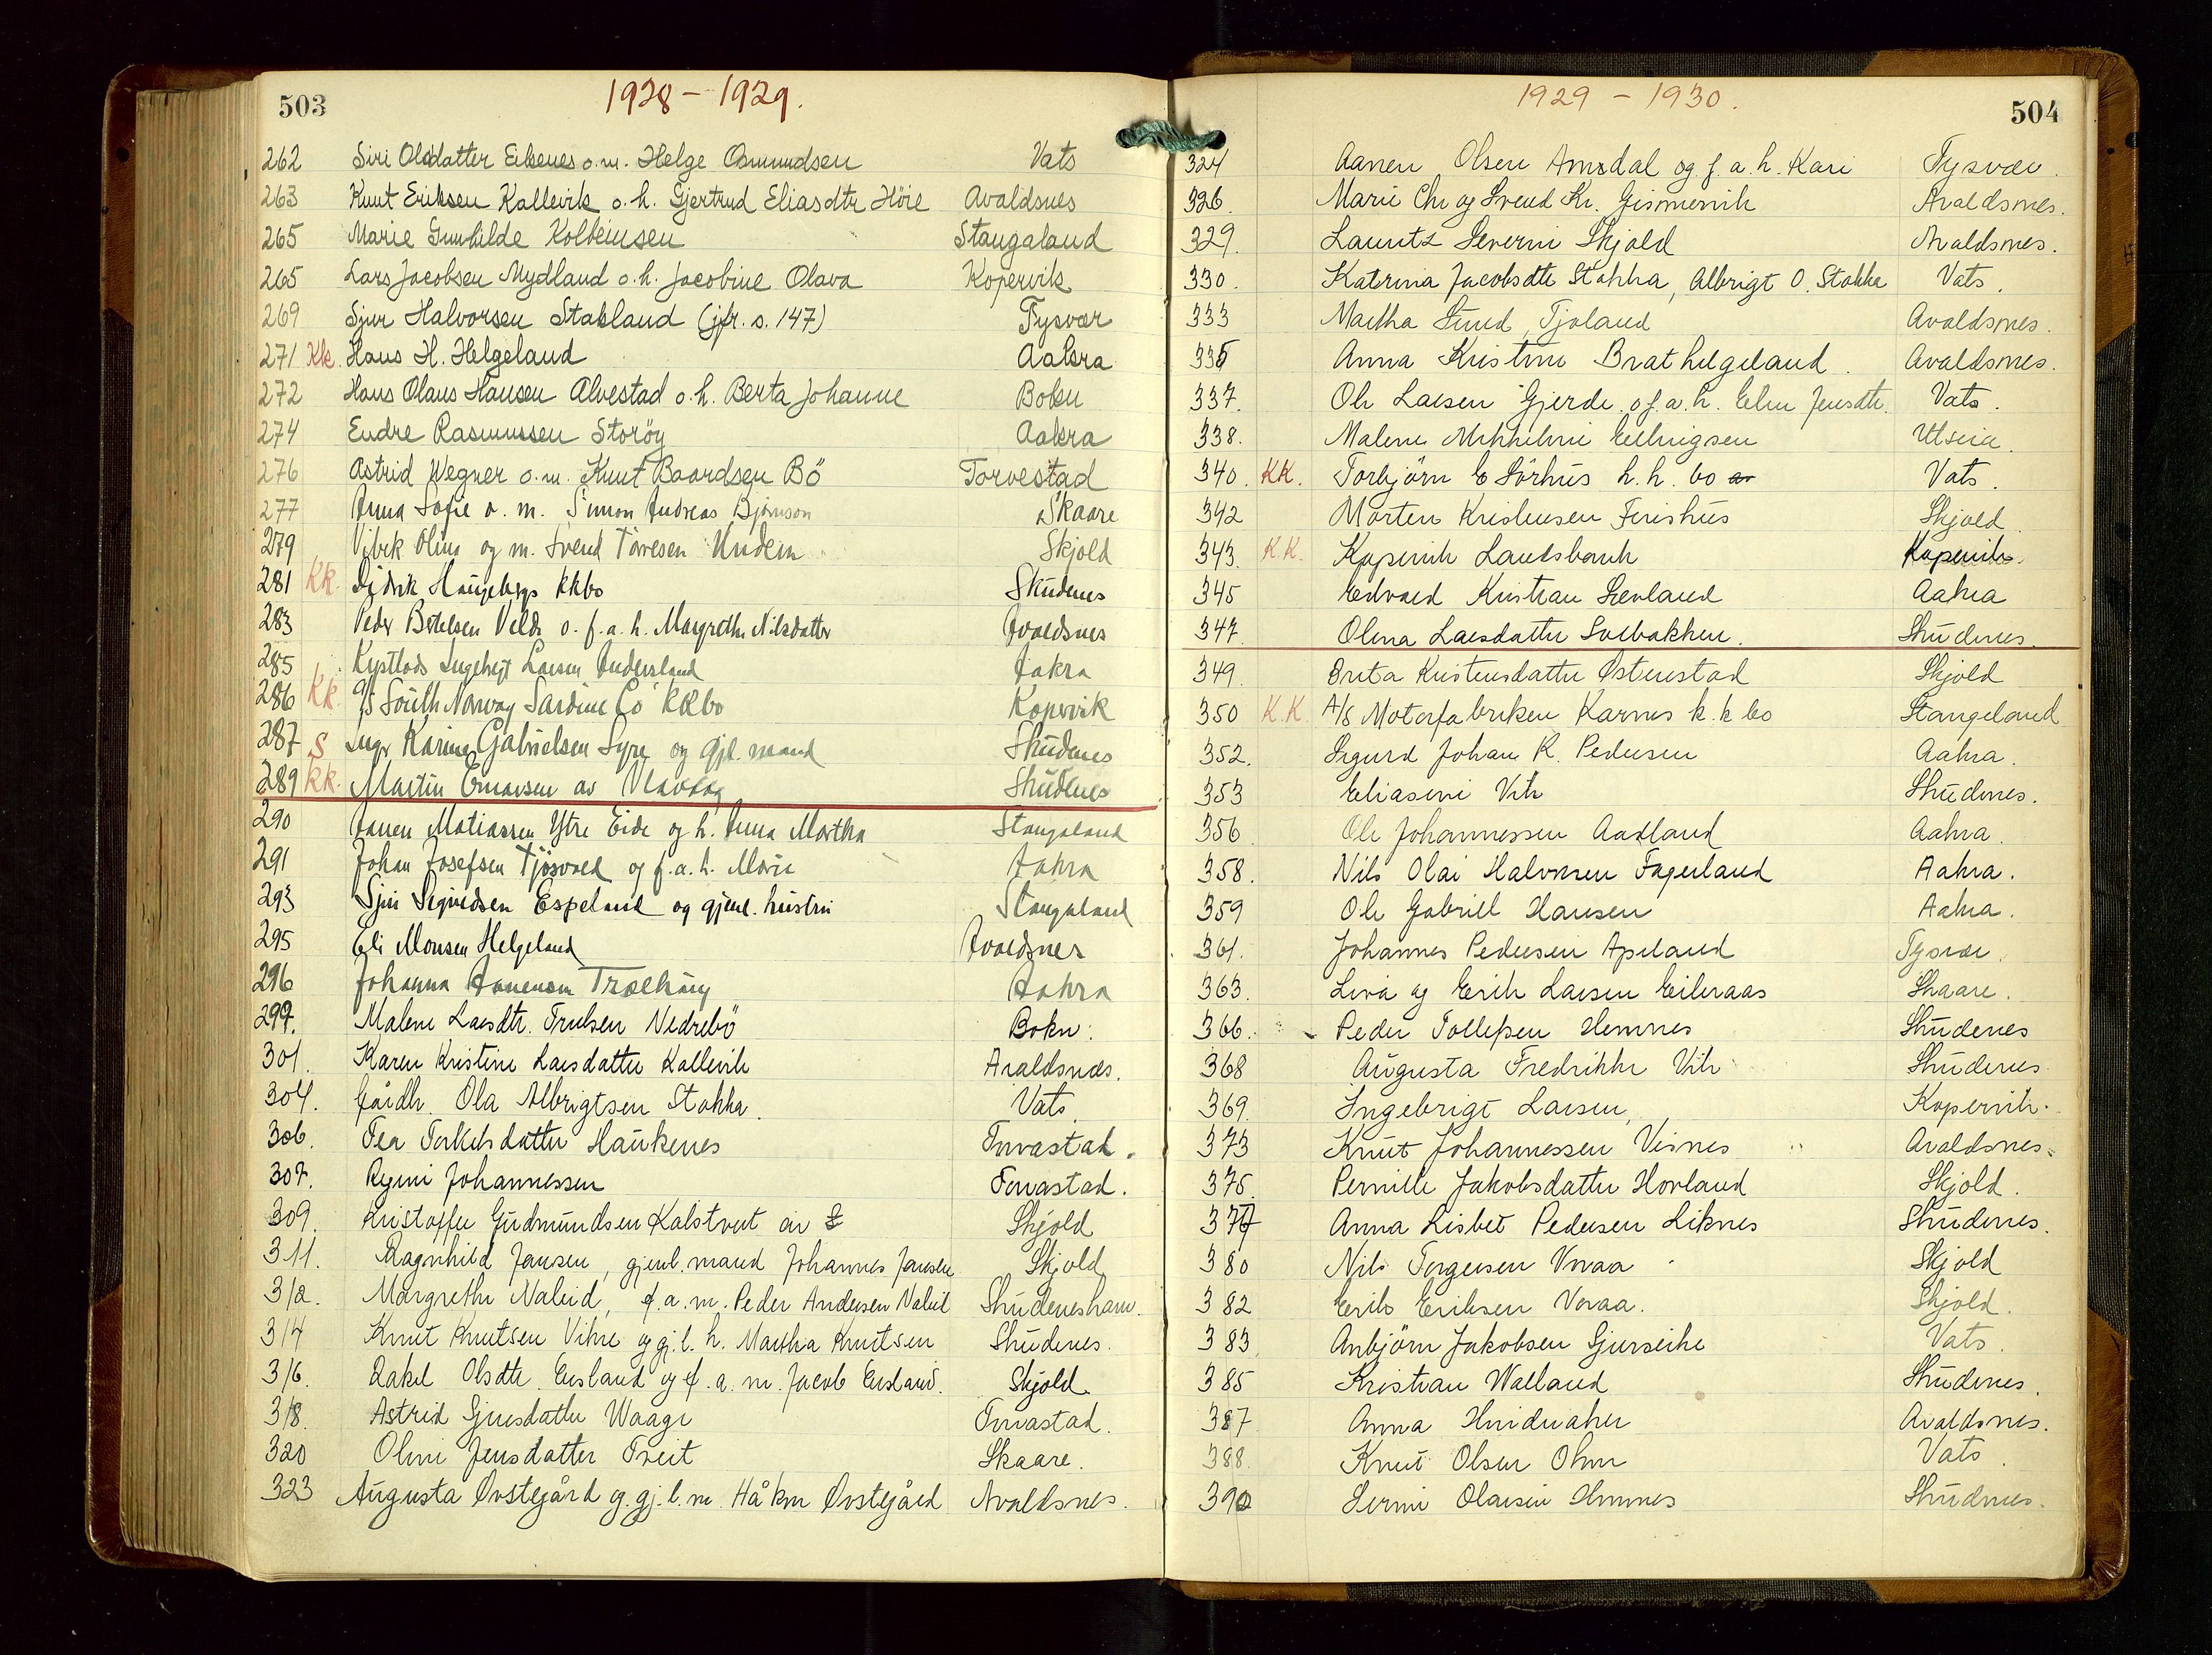 503
1928 - 1929.
262 Siri Olsdatter Eikenes o.m. Helge Osmundsen Vats
263 Knut Eriksen Kallevik o. h. Gjertrud Eliasdtr Höie Avaldsnes
265 Marie Gunhilde Kolbeinsen Stangaland
265 Lars Jacobsen Mydland o.h. Jacobine Olava Kopervik
269 Sjur Halvorsen Stakland (jfr. s. 147) Tysvær
271 Kk. Hans H. Helgeland Aakra
272 Hans Olaus Hansen Alvestad o.h. Berta Johanne Bokn
274 Endre Rasmussen Storöy Aakra
276 Astrid Wegner o.m. Knut Baardsen Bö Torvestad
277 Anna Sofie o. m. Simon Andreas Bjørnson Skaare
279 Vibek Olina og m. Svend Tøresen Undem Skjold
281 Kk. Didrik Haugebergs kkbo Skudenes
283 Peder Botelsen Velde o. f. a. h. Margrethe Nilsdatter Avaldsnes
285 Ingebrigt Larsen Aakra
286 Kk. A/S South Norway Sardine Co kkbo Kopervik
287 S Karine Gabrielsen Syre og gjl. mand Skudenes
289 Kk. Martin Omarsen av Skudenes
290 Janen Matiassen Ytre Eide og h. Anna Martha Stangaland
291 Johan Josefsen Tjösvold og f.a.h. Marie Aakra
293 Siri Sigvedsen Espeland og gjenl. hustru Stangaland
295 Eli Monsen Helgeland Avaldsnes
296 Johanna Trælhaug Aakra
299. Malene Larsdtr. Trulsen Nedrebö Bokn.
301. Karen Kristine Larsdatter Kallevik Avaldsnes.
304. Gårdb. Ola Albrigtsen Stakka Vats.
306. Tea Terkelsdatter Haukenes Torvastad.
307. Regine Johannessen Torvastad.
309. Kristoffer Gudmundsen Kalstveit Skjold
311. Ragnhild Jansen, gjenl. mand Johannes Jansen Skjold
312. Margrethe Naleid, f.a.m. Peder Andersen Naleid Skudeneshavn.
314 Knut Knutsen Vikre og gj.l. h. Martha Knutsen Skudenes.
316. Rakel Olsdtr. Ersland og f. a. m. Jacob Ersland. Skjold.
318. Astrid Sjursdatter Waage Torvastad.
320 Oline Jensdatter Treit Skaare.
323 Augusta Ovstegård og gj.l.m. Håkon Ovstegård Avaldsnes.
504
1929 - 1930.
324 Aanen Olsen Amdal og f.a.h. Kari Tysvær.
326. Marie Chr og Svend Kr. Gismervik Avaldsnes.
329. Lauritz Severin Skjold Avaldsnes.
330. Katrina Jacobsdtr Stakka, Albrigt O. Stakka Vats.
333 Martha Lund, Tjoland Avaldsnes.
335 Anna Kristine Brathelgeland. Avaldsnes.
337. Ole Larsen Gjerde. o f.a.h. Elen Jensdtr. Vats.
338. Malene Mikkeline Ellingsen Utsira
340. KK. Torbjörn E Sörhus k.k. bo Vats.
342 Morten Kristensen Ferishus Skjold
343. K.K. Kopervik Landsbank Kopervik.
345 Edvard Kristian Sevland Aakra
347. Olena Larsdatter Solbakken. Skudenes.
349. Brita Kristensdatter Østenstad Skjold
350 K.K. A/S Motorfabriken Karnes k.k bo Stangeland
352. Sigurd Johan R. Pedersen Aakra.
353 Eliasine Vik Skudenes.
356 Ole Johannessen Aadland Aakra.
358. Nils Olai Halvorsen Fagerland Aakra.
359 Ole Gabriel Hansen Aakra.
361. Johannes Pedersen Apeland Tysvær.
363. Liva og Erik Larsen Eikeraas Skaare.
366. Peder Tollefsen Hemnes Skudenes
368 Augusta Fredrikke Vik Skudenes
369. Ingebrigt Larsen, Kopervik.
373 Knut Johannessen Visnes Avaldsnes.
375. Pernille Jakobsdatter Hovland Skjold.
377 Anna Lisbet Pedersen Liknes Skudenes.
380 Nils Torgersen Vraa Skjold
382 Erik Eriksen Vraa. Skjold.
383. Anbjörn Jakobsen Gjerseike Vats.
385 Kristian Walland Skudenes.
387 Anna Avaldsnes.
388. Knut Olsen Vats.
390 Serine Olaisen Skudenes.